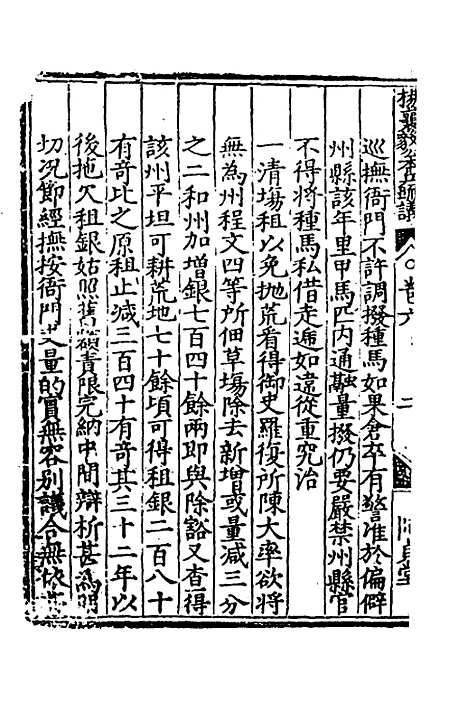 楊襄毅公本兵疏議
卷六
二
巡撫衙門不許調撥種馬如果倉卒有警准於偏僻
州縣該年里甲馬匹内通融量撥仍要嚴禁州縣官
不得將種馬私借走遞如違從重究治
一清塲租以免抛荒看得御史羅復所陳大率欲將
無為州程文四等所佃草塲除去新增或量減三分
之二和州加增銀七百四十餘兩即與除豁又查得
該州平坦可耕荒地七十餘頃可得租銀二百八十
有奇比之原租止減三百四十有奇其三十二年以
後拖欠租銀姑照舊額責限完納中間辯析甚為明
切況節經撫按衙門丈量的實無容別議合無依